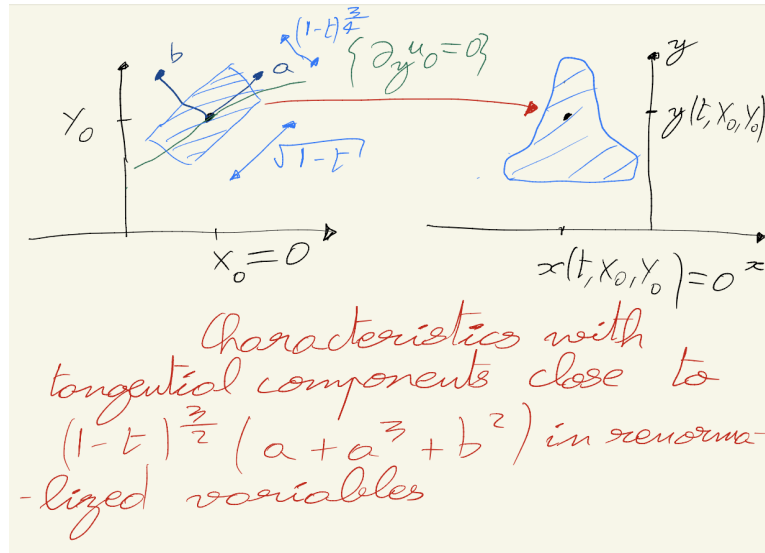 (1-t)^{3/4}
b
a
{∂_y u_0 = 0}
y
Y_0
y(t, X_0, Y_0)
√(1-t)
X_0 = 0
x(t, X_0, Y_0) = 0
x
Characteristics with
tangential components close to
(1-t)^{3/2} (a + a^3 + b^2) in renorma-
-lized variables